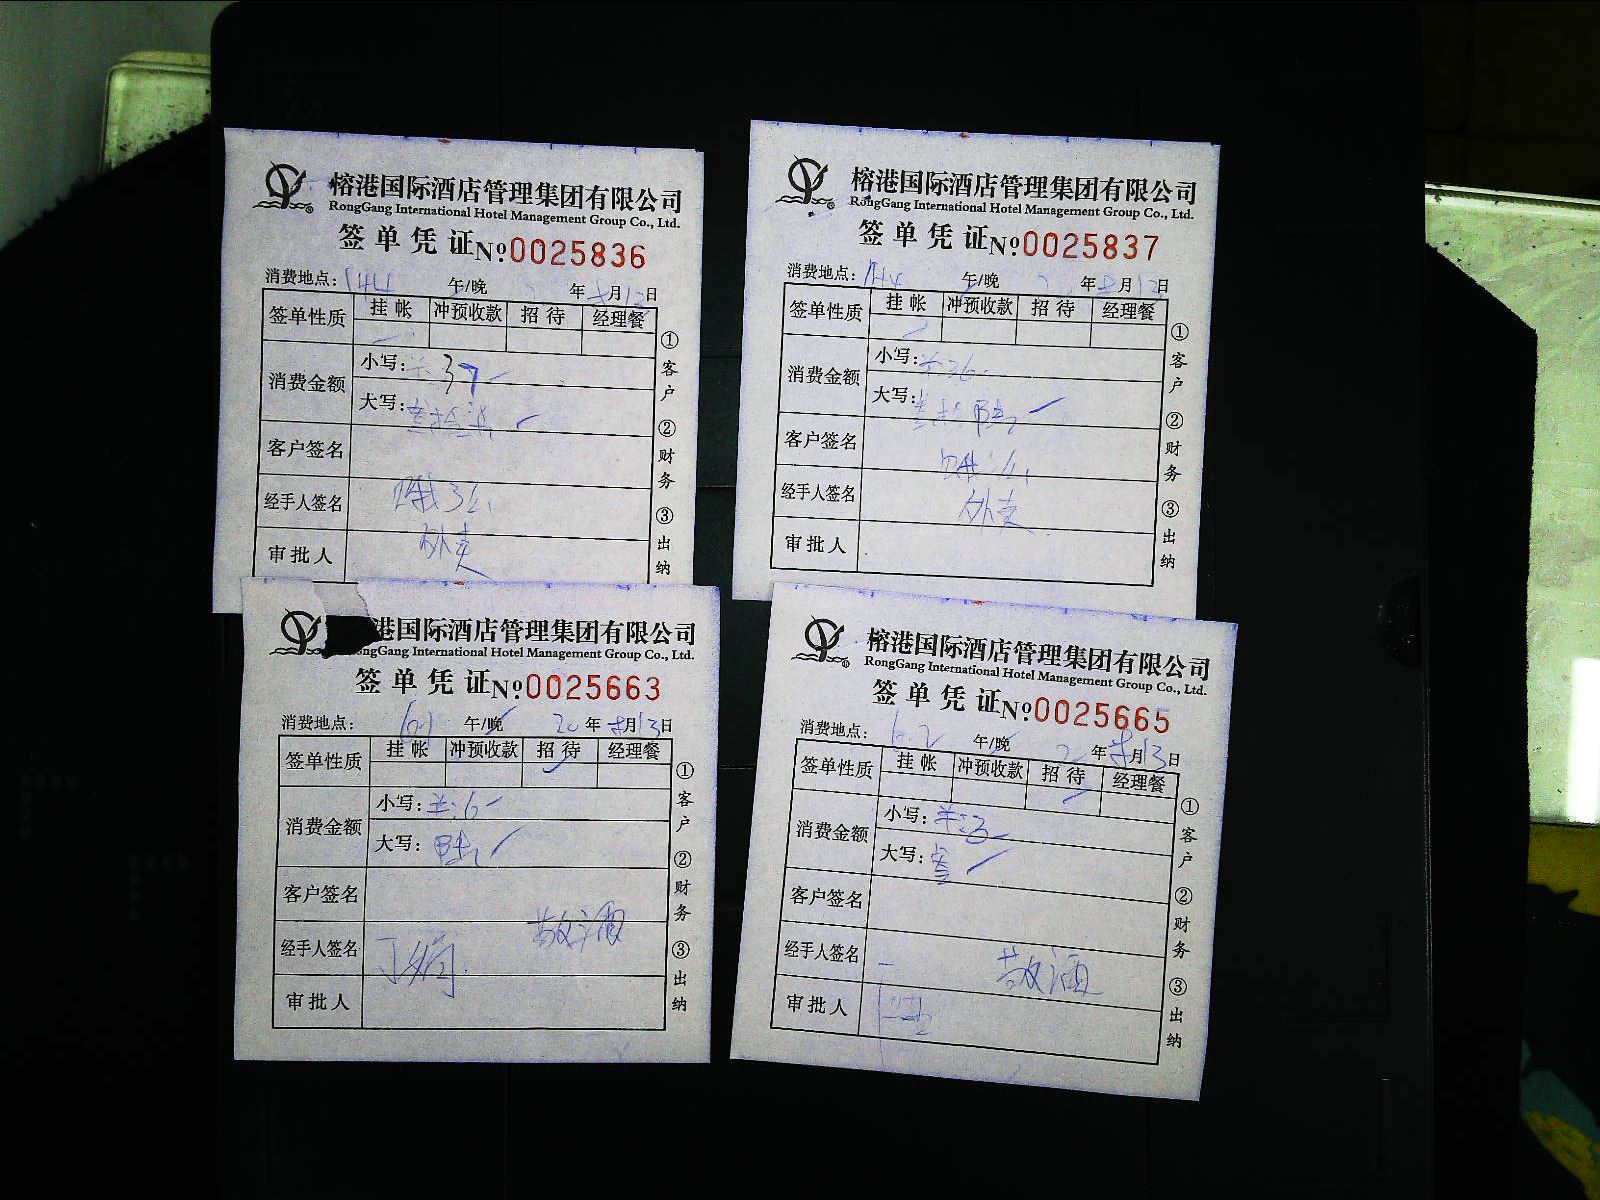 榕港国际酒店管理集团有限公司
RongGang International Hotel Management Group Co., Ltd.
签单凭证 №0025836
消费地点：144 午/晚 年 8月12日
签单性质 挂帐 冲预收款 招待 经理餐
消费金额 小写：37
大写：叁拾
客户签名
经手人签名
外卖
审批人
①客户 ②财务 ③出纳
榕港国际酒店管理集团有限公司
RongGang International Hotel Management Group Co., Ltd.
签单凭证 №0025837
消费地点：144 午/晚 年 8月12日
签单性质 挂帐 冲预收款 招待 经理餐
消费金额 小写：¥:36
大写：叁拾陆
客户签名
经手人签名 外卖
审批人
①客户 ②财务 ③出纳
港国际酒店管理集团有限公司
ongGang International Hotel Management Group Co., Ltd.
签单凭证 №0025663
消费地点： 午/晚 20年8月13日
签单性质 挂帐 冲预收款 招待 经理餐
消费金额 小写：¥:6
大写：陆
客户签名
敬酒
经手人签名
审批人
①客户 ②财务 ③出纳
榕港国际酒店管理集团有限公司
RongGang International Hotel Management Group Co., Ltd.
签单凭证 №0025665
消费地点： 午/晚 年8月13日
签单性质 挂帐 冲预收款 招待 经理餐
消费金额 小写：¥:3
大写：叁
客户签名
经手人签名 敬酒
审批人
①客户 ②财务 ③出纳